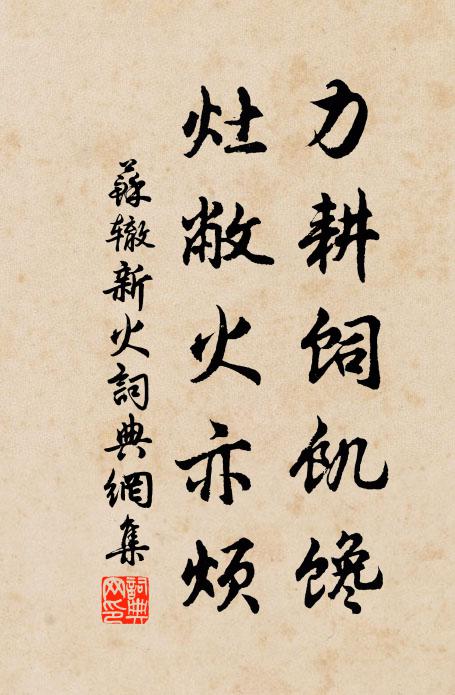 力耕饲飢馋
灶敝火亦烦
蘇辙新火詞典網集
詞典